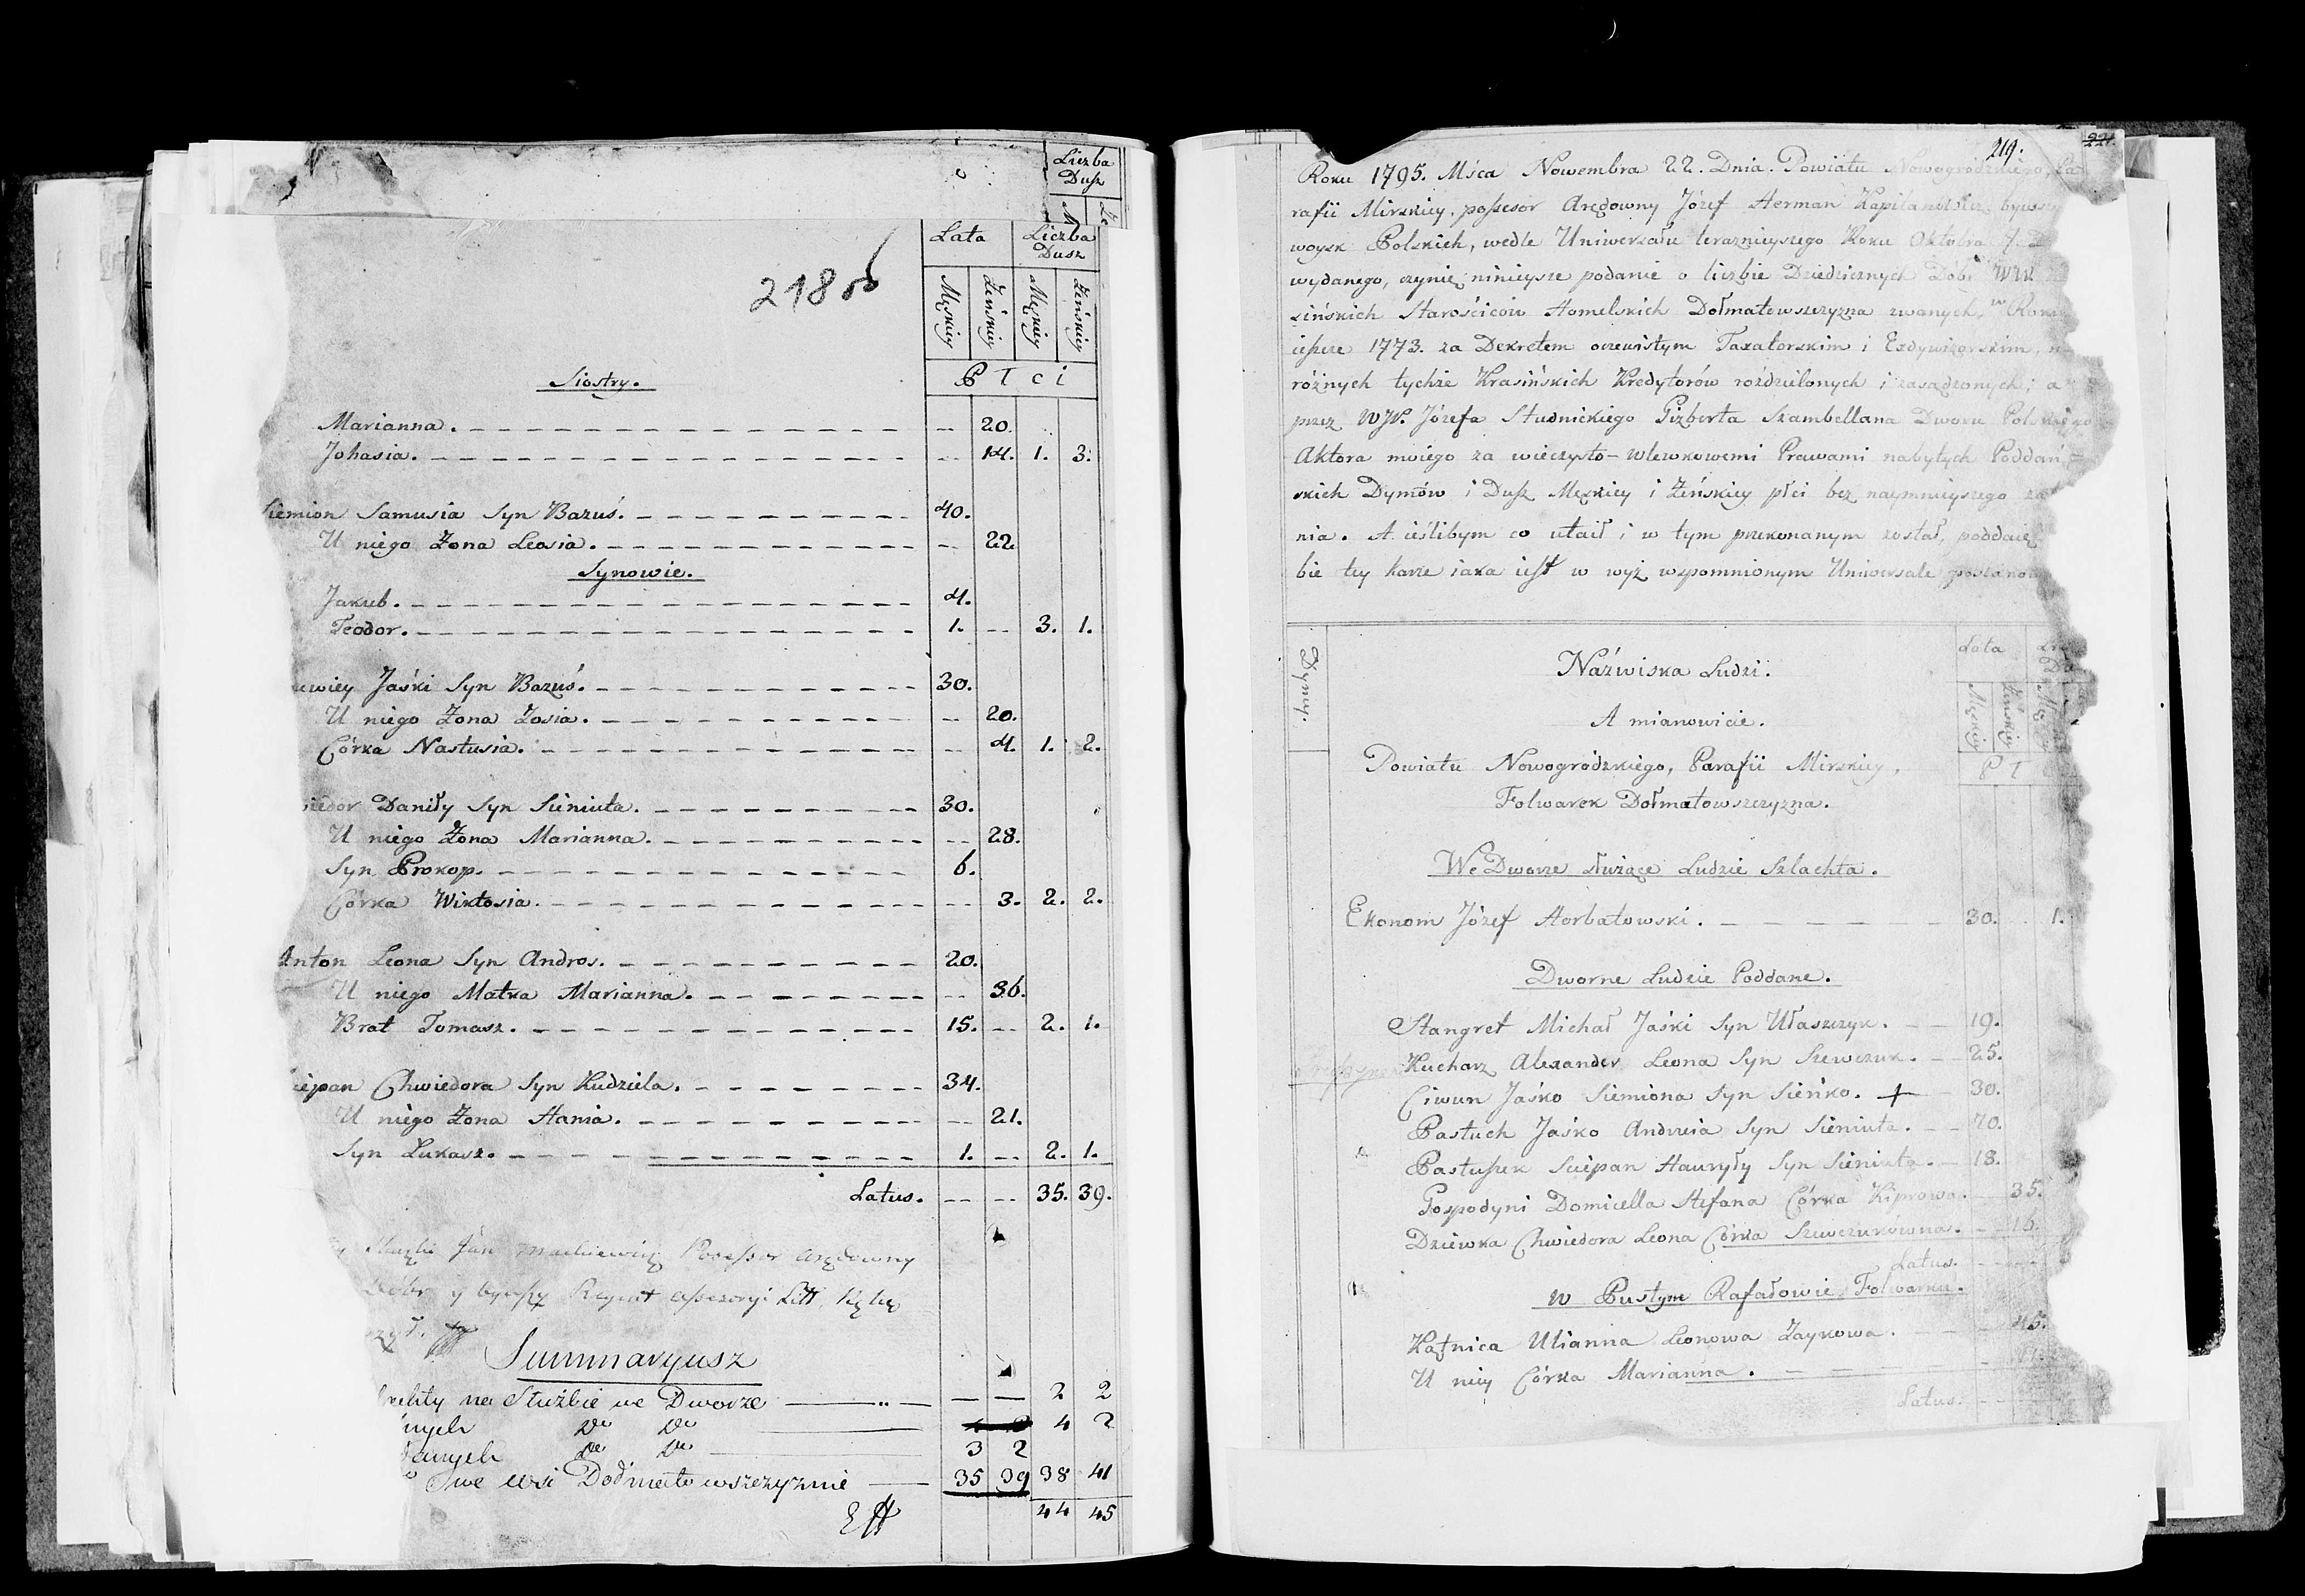 Liczba
Dusz
218 об
Lata Liczba
Dusz
Męskiey Żeńskiey Męskiey Żeńskiey
Płci
Siostry.
Marianna. -- 20.
Johasia. -- 14. 1. 3.
Siemion Samusia Syn Bazuś. 40.
U niego Żona Leosia. -- 22
Synowie.
Jakub. 4.
Teodor. 1. -- 3. 1.
Jaśki Syn Bazuś. 30.
U niego Żona Zosia. -- 20.
Córka Nastusia. -- 4. 1. 2.
Daniły Syn Sieniuta. 30.
U niego Żona Marianna. -- 28.
Syn Prokop. 6.
Córka Wiktosia. -- 3. 2. 2.
Anton Leona Syn Andros. 20.
U niego Matka Marianna. -- 36.
Brat Tomasz. 15. -- 2. 1.
Chwiedora Syn Kudziela. 34.
U niego Żona Hania. -- 21.
Syn Łukasz. 1. -- 2. 1.
Latus. -- -- 35. 39.
Jan Mackiewicz Possessor arędowny
y bywszy Regent Litt.
Summaryusz
na Służbie we Dworze — — 2 2
4 2
3 2
we wsi Dołmatowszczyznie 35 39 38 41
44 45
219. 221
Roku 1795. Mśca Nowembra 22. Dnia. Powiatu Nowogródzkiego, Pa
rafii Mirskiey, possesor Arędowny Józef Herman Kapitan bywszy
woysk Polskich, wedle Uniwersału terazniejszego Roku Oktobra
wydanego, czynię ninieysze podanie o liczbie Dziedzicznych Dóbr WW
sińskich Starościców Homelskich Dołmatowszczyzna zwanych, w Roku
ieszcze 1773. za Dekretem oczewistym Taxatorskim i Exdywizorskim, na
róźnych tychże Krasińskich Kredytorów rozdzielonych i zasądzonych; a
przez WJP. Józefa Studnickiego Gizberta Szambellana Dworu Polskiego
Aktora moiego za wieczysto-wlewkowemi Prawami nabytych Poddań-
skich Dymów i Dusz Męskiey i Żeńskiey płci bez naymnieyszego
nia. A ieślibym co utaił i w tym przekonanym został, poddaię
bie tey karze iaka iest w wyż wspomnionym Uniwersale
Dymy.
Lata
Naźwiska Ludzi.
Męskiey Żeńskiey
A mianowicie.
Powiatu Nowogródzkiego, Parafii Mirskiey,
Folwarek Dołmatowszczyzna.
We Dworze służące Ludzie Szlachta.
Ekonom Józef Horbatowski. 30. 1.
Dworne Ludzie Poddane.
Stangret Michał Jaśki Syn Ułaszczyk. 19.
Kucharz Alexander Leona Syn Szewczuk. 25.
Ciwun Jaśko Siemiona Syn Sieńko. + 30.
Pastuch Jaśko Andreia Syn Sieniuta. 70.
Pastuszek Sciepan Hauryły Syn Sieniuta. 18.
Gospodyni Domicella Stefana Córka Kiprowa. 35.
Dziewka Chwiedora Leona Córka Szewczukówna. 16.
Latus.
W Pustym Rafałowie Folwarku.
Kątnica Ulianna Leonowa Zaykowa. 45.
U niey Córka Marianna.
Latus.